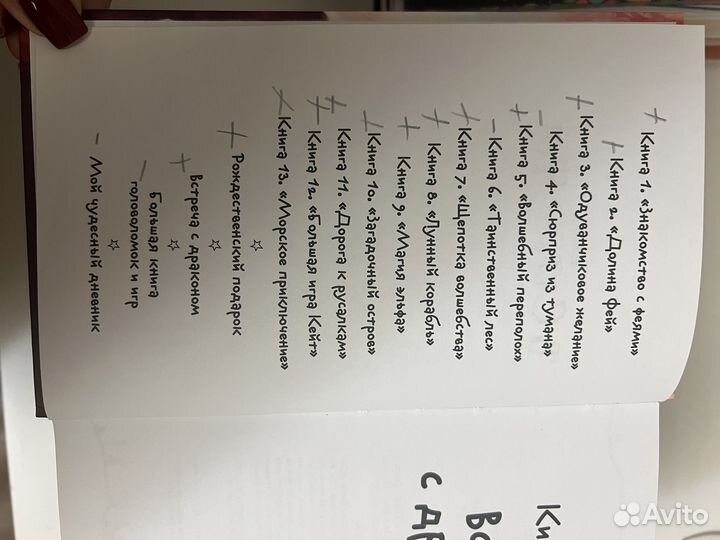 + Книга 1. «Знакомство с феями»
+ Книга 2. «Долина фей»
+ Книга 3. «Одуванчиковое желание»
– Книга 4. «Сюрприз из тумана»
+ Книга 5. «Волшебный переполох»
– Книга 6. «Таинственный лес»
+ Книга 7. «Щепотка волшебства»
+ Книга 8. «Лунный корабль»
+ Книга 9. «Магия эльфа»
+ Книга 10. «Загадочный остров»
+ Книга 11. «Дорога к русалкам»
+ Книга 12. «Большая игра Кейт»
+ Книга 13. «Морское приключение»
☆
+ Рождественский подарок
☆
+ Встреча с драконом
☆
– Большая книга
головоломок и игр
☆
– Мой чудесный дневник
Avito